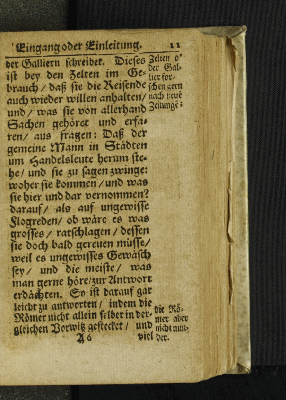 Eingang oder Einleitung. 11
der Galliern schreibet. Dieses
ist bey den Zelten im Ge-
brauch / daß sie die Reisende
auch wieder willen anhalten /
und / was sie von allerhand
Sachen gehöret und erfa-
ren / aus fragen: Daß der
gemeine Mann in Städten
um Handelsleute herum ste-
he / und sie zu sagen zwinge:
woher sie kommen / und was
sie hier und dar vernommen?
darauf / als auf ungewisse
Flogreden / ob wäre es was
grosses / ratschlagen / dessen
sie doch bald gereuen müsse /
weil es ungewisses Gewäsch
sey / und die meiste / was
man gerne höre / zur Antwort
erdächten. Es ist darauf gar
leicht zu antworten / indem die
Römer nicht allein selber in der-
gleichen Vorwitz gestecket / und
A 6 viel
Zelten o-
der Gal-
lier for-
schen gern
nach neue
Zeitunge:
die Rö-
mer aber
nicht min-
der.